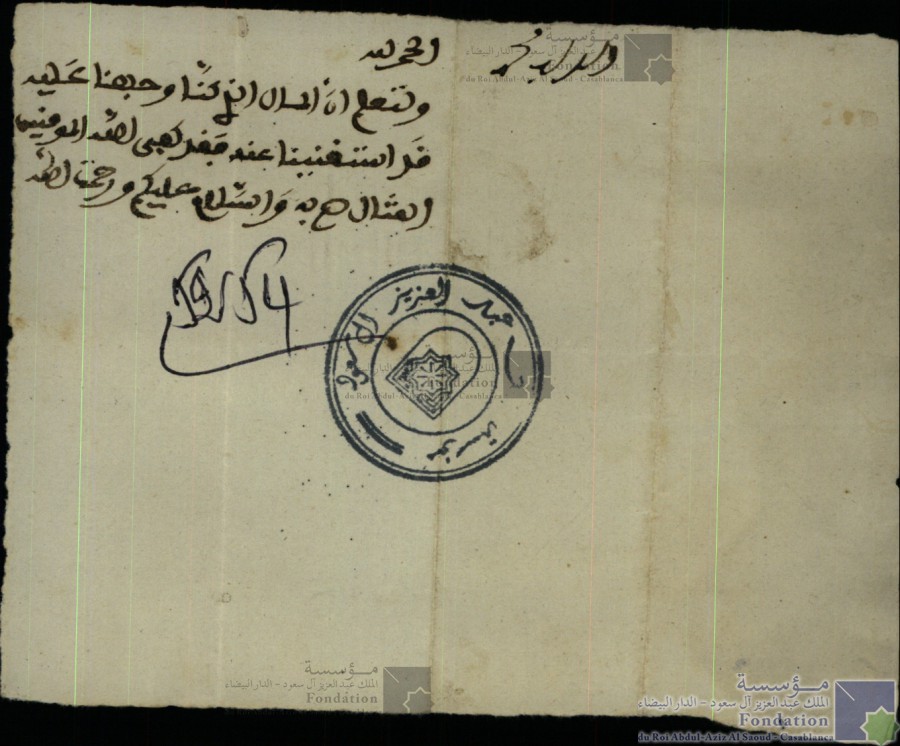 الحمد لله
ولتعلم ان المال الذي كنا وجهنا عليه
قد استغنينا عنه فقد كفى الله المومنين
القتال هـ به والسلام عليكم ورحمت الله
19/54
عبد العزيز آل سعود
مؤسسة
مؤسسة
الملك عبد العزيز آل سعود - الدار البيضاء
Fondation
du Roi Abdul-Aziz Al Saoud - Casablanca
مؤسسة
الملك عبد العزيز آل سعود - الدار البيضاء
Fondation
مؤسسة
الملك عبد العزيز آل سعود - الدار البيضاء
Fondation
du Roi Abdul-Aziz Al Saoud - Casablanca
مؤسسة
الملك عبد العزيز آل سعود - الدار البيضاء
Fondation
du Roi Abdul-Aziz Al Saoud - Casablanca